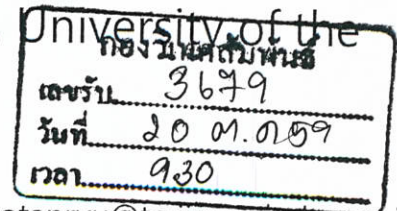 University of the
กองวิเทศสัมพันธ์
เลขรับ 3679
วันที่ 20 ต.ค. 59
เวลา 930